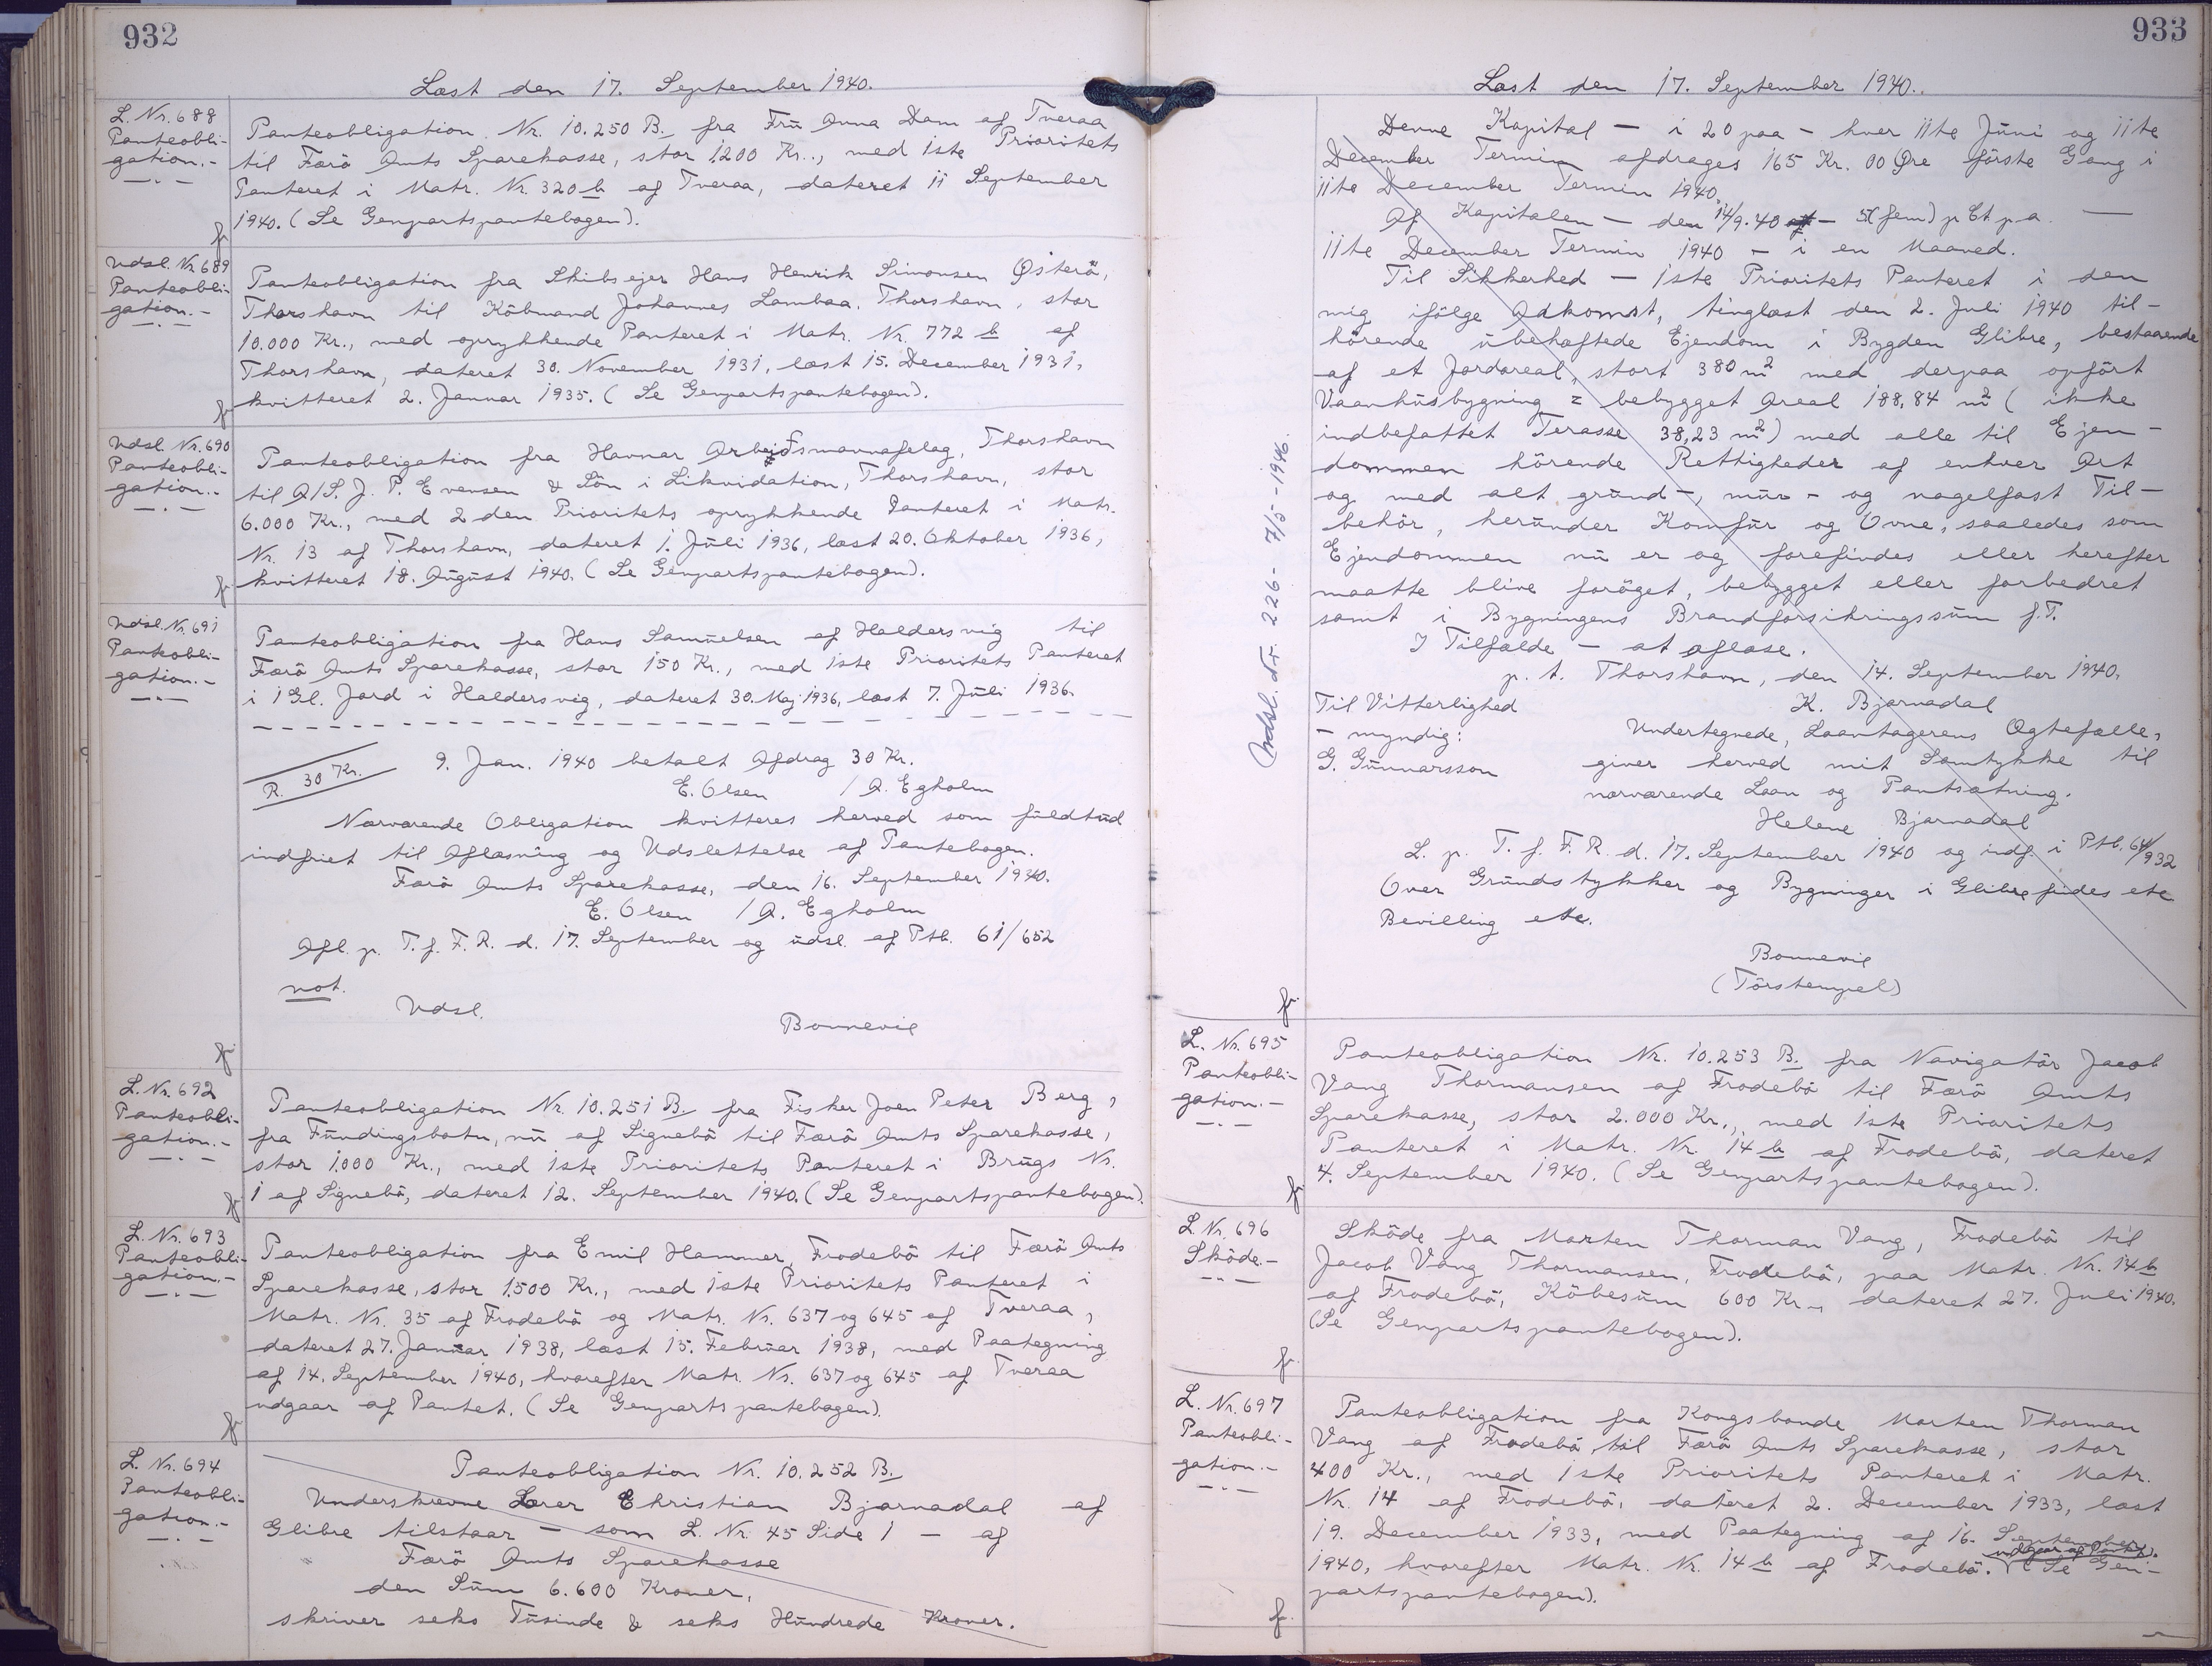 932
Læst den 17. September 1940.
L. Nr. 688
Panteobli-
gation.-
Panteobligation Nr. 10.250 B. fra Frü Anna Dam af Tveraa
til Færö Amts Sparekasse, stor 1200 Kr., med 1ste Prioritets
Panteret i Matr. Nr. 320 b af Tveraa, dateret 11 September
1940. (Se Genpartspantebogen).
fr
Udsl. Nr. 689
Panteobli-
gation.-
Panteobligation fra Skibsejer Hans Henrik Simonsen Østerö,
Thorshavn til Köbmand Johannes Lambaa, Thorshavn, stor
10.000 Kr., med oprykkende Panteret i Matr. Nr. 772 b af
Thorshavn, dateret 30. November 1931, læst 15. December 1931,
kvitteret 2. Januar 1935. (Se Genpartspantebogen).
fr
Udsl. Nr. 690
Panteobli-
gation.-
Panteobligation fra Havnar Arbeiðsmannafelag, Thorshavn
til A/S. J. P. Evensen & Sön i Likvidation, Thorshavn, stor
6.000 Kr., med 2den Prioritets oprykkende Panteret i Matr.
Nr. 13 af Thorshavn, dateret 1. Jüli 1936, læst 20. Oktober 1936,
kvitteret 18. Aügüst 1940. (Se Genpartspantebogen).
fr
Udsl. Nr. 691
Panteobli-
gation.-
Panteobligation fra Hans Samüelsen af Haldersvig til
Færö Amts Sparekasse, stor 150 Kr., med 1ste Prioritets Panteret
i 1 Gl. Jord i Haldersvig, dateret 30. Maj 1936, læst 7. Jüli 1936.
R. 30 Kr.
9. Jan. 1940 betalt Afdrag 30 Kr.
E. Olsen / A. Egholm
Nærværende Obligation kvitteres herved som füldtüd
indfriet til Aflæsning og Udslettelse af Pantebogen.
Færö Amts Sparekasse, den 16. September 1940.
E. Olsen / A. Egholm
Afl. p. T. f. F. R. d. 17. September og üdsl. af Ptb. 61/652
not.
Udsl.
Bonnevie
fr
L. Nr. 692
Panteobli-
gation.-
Panteobligation Nr. 10.251 B. fra Fisker Joen Peter Berg,
fra Fündingsbotn, nü af Signebö til Færö Amts Sparekasse,
stor 1.000 Kr., med 1ste Prioritets Panteret i Brügs Nr.
1 af Signebö, dateret 12. September 1940. (Se Genpartspantebogen).
fr
L. Nr. 693
Panteobli-
gation.-
Panteobligation fra Emil Hammer, Frodebö til Færö Amts
Sparekasse, stor 1.500 Kr., med 1ste Prioritets Panteret i
Matr. Nr. 35 af Frodebö og Matr. Nr. 637 og 645 af Tveraa,
dateret 27. Janüar 1938, læst 15. Febrüar 1938, med Paategning
af 14. September 1940, hvorefter Matr. Nr. 637 og 645 af Tveraa
udgaar af Pantet. (Se Genpartspantebogen).
fr
L. Nr. 694
Panteobli-
gation.-
Panteobligation Nr. 10.252 B.
Underskrevne Lærer Christian Bjarnadal af
Glibre tilstaar - som L. Nr. 45 Side 1 - af
Færö Amts Sparekasse
den Süm 6.600 Kroner,
skriver seks Tüsinde & seks Hündrede Kroner.
933
Læst den 17. September 1940.
Denne Kapital - i 20 paa - hver 11te Jüni og 11te
December Termin afdrages 165 Kr. 00 Øre förste Gang i
11te December Termin 1940.
Af Kapitalen - den 14/9.40 af - 5 (fem) p Ct p.a. -
11te December Termin 1940 - i en Maaned.
Til Sikkerhed - 1ste Prioritets Panteret i den
mig ifölge Adkomst, tinglæst den 2. Juli 1940 til-
hörende übehæftede Ejendom i Bygden Glibre, bestaaende
af et Jordareal, stort 380 m² med derpaa opfört
Vaanhüsbygning = bebygget Areal 188,84 m² (ikke
indbefattet Terasse 38,23 m²) med alle til Ejen-
dommen hörende Rettigheder af enhver Art
og med alt gründ-, mür- og nagelfast Til-
behör, heründer Komfür og Ovne, saaledes som
Ejendommen nü er og forefindes eller herefter
maatte blive foröget, bebygget eller forbedret
samt i Bygningens Brandforsikringssüm f.T.
I Tilfælde - at aflæse.
p. t. Thorshavn, den 14. September 1940.
Til Vitterlighed
K. Bjarnadal
- myndig:
Undertegnede, Laantagerens Ægtefælle,
G. Günnarsson
giver herved mit Samtykke til
nærværende Laan og Pantsætning.
Helene Bjarnadal
L. p. T. f. F. R. d. 17. September 1940 og indf. i Ptb. 64/932
Over Gründstykker og Bygninger i Glibre findes etc
Bevilling etc.
Bonnevie
(Törstempel)
fr.
Udsl. Nr. 226 - 7/5 - 1946.
L. Nr. 695
Panteobli-
gation.-
Panteobligation Nr. 10.253 B. fra Navigatör Jacob
Vang Thormansen af Frodebö til Færö Amts
Sparekasse, stor 2.000 Kr., med 1ste Prioritets
Panteret i Matr. Nr. 14 b af Frodebö, dateret
4. September 1940. (Se Genpartspantebogen).
fr.
L. Nr. 696
Sköde.-
Sköde fra Morten Thorman Vang, Frodebö til
Jacob Vang Thormansen, Frodebö, paa Matr. Nr. 14 b
af Frodebö, Köbesüm 600 Kr., dateret 27. Juli 1940.
(Se Genpartspantebogen).
fr.
L. Nr. 697
Panteobli-
gation.-
Panteobligation fra Kongsbonde Morten Thorman
Vang af Frodebö til Færö Amts Sparekasse, stor
400 Kr., med 1ste Prioritets Panteret i Matr.
Nr. 14 af Frodebö, dateret 2. December 1933, læst
19. December 1933, med Paategning af 16. September
udgaar af Pantet.
1940, hvorefter Matr. Nr. 14 b af Frodebö. (Se Gen-
partspantebogen).
fr.